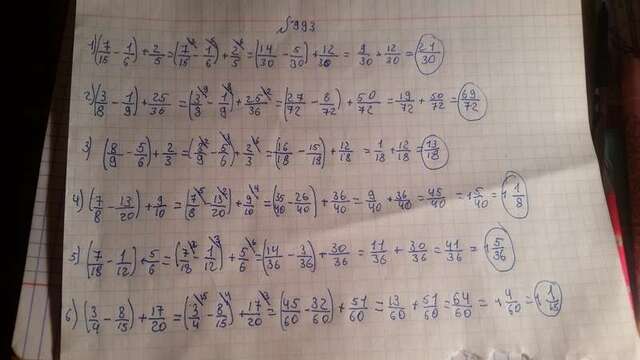 № 993
1) (7/15 - 1/6) + 2/5 = (7/15 - 1/6) + 2/5 = (14/30 - 5/30) + 12/30 = 9/30 + 12/30 = 21/30
2) (3/8 - 1/9) + 25/36 = (3/8 - 1/9) + 25/36 = (27/72 - 8/72) + 50/72 = 19/72 + 50/72 = 69/72
3) (8/9 - 5/6) + 2/3 = (8/9 - 5/6) + 2/3 = (16/18 - 15/18) + 12/18 = 1/18 + 12/18 = 13/18
4) (7/8 - 13/20) + 9/10 = (7/8 - 13/20) + 9/10 = (35/40 - 26/40) + 36/40 = 9/40 + 36/40 = 45/40 = 1 5/40 = 1 1/8
5) (7/18 - 1/12) + 5/6 = (7/18 - 1/12) + 5/6 = (14/36 - 3/36) + 30/36 = 11/36 + 30/36 = 41/36 = 1 5/36
6) (3/4 - 8/15) + 17/20 = (3/4 - 8/15) + 17/20 = (45/60 - 32/60) + 51/60 = 13/60 + 51/60 = 64/60 = 1 4/60 = 1 1/15